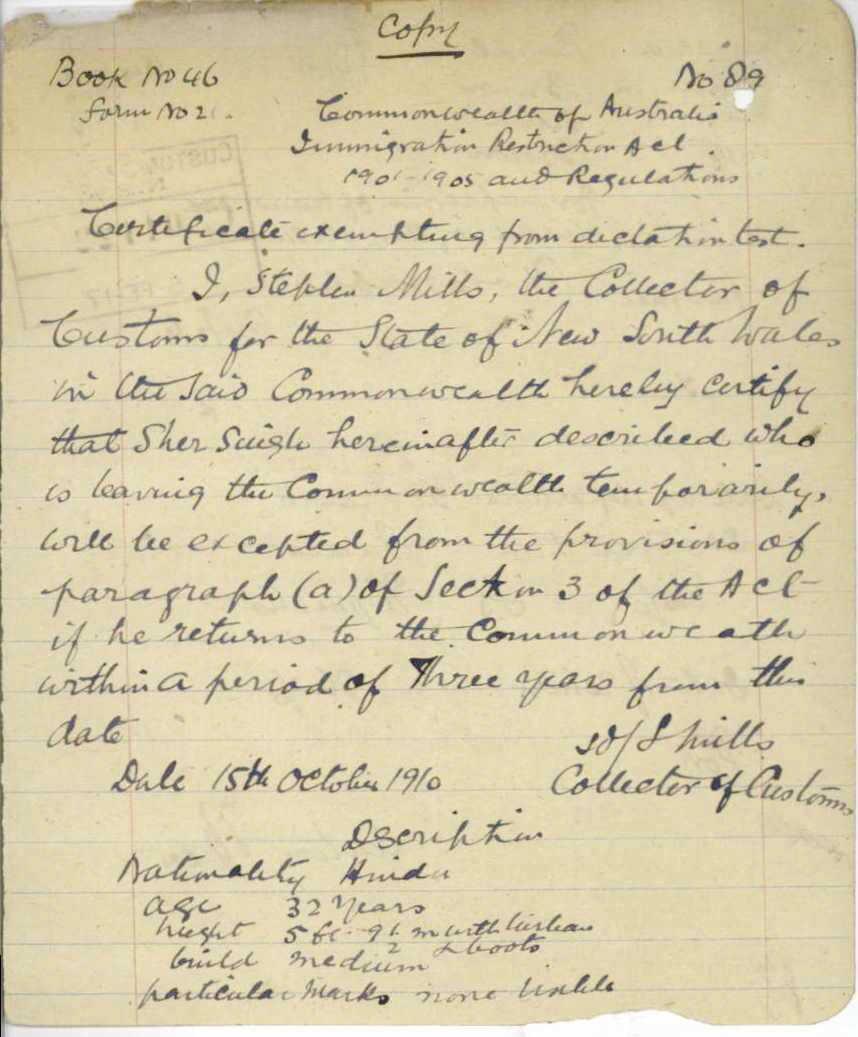 Copy
Book No 46
No 89
Form No 21.
Commonwealth of Australia
Immigration Restriction Act.
1901-1905 and Regulations
Certificate exempting from dictation test.
I, Stephen Mills, the Collector of
Customs for the State of New South Wales
in the said Commonwealth hereby certify
that Sher Singh hereinafter described who
is leaving the Commonwealth temporarily,
will be excepted from the provisions of
paragraph (a) of Section 3 of the Act
if he returns to the Commonwealth
within a period of Three years from this
date
sd/ S Mills
Date 15th October 1910
Collector of Customs
Dscription
Nationality Hindu
age 32 years
height 5 ft 9½ in with turban
& boots
build medium
particular marks none visible
CUSTOMS